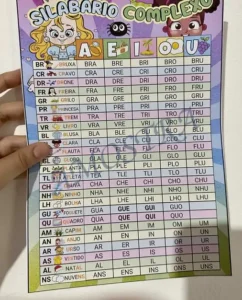 SILABÁRIO COMPLEXO
A E I O U
BR BRUXA BRA BRE BRI BRO BRU
CR CRAVO CRA CRE CRI CRO CRU
DR DRA DRE DRI DRO DRU
FR FREIRA FRA FRE FRI FRO FRU
GR GRILO GRA GRE GRI GRO GRU
PR PRINCESA PRA PRE PRI PRO PRU
TR TREM TRA TRE TRI TRO TRU
VR LIVRO VRA VRE VRI VRO VRU
BL BLUSA BLA BLE BLI BLO BLU
CLARA CLA CLE CLI CLO CLU
FLAUTA FLA FLE FLI FLO FLU
GLO GLU
PLO PLU
TLU
CH CHA CHE CHI CHO CHU
NH NINHO NHA NHE NHI NHO NHU
LH BOLHA LHA LHE LHI LHO LHU
GU FOGUETE GUA GUE GUI GUO
QU QUADRO QUA QUE QUI QUO
AM AM EM IM OM UM
AN ANJO AN EN IN ON UN
AR URSO AR ER IR OR UR
AS VESTIDO AS ES IS OS US
AL NATAL AL EL IL OL UL
NS NUVENS ANS ENS INS ONS UNS